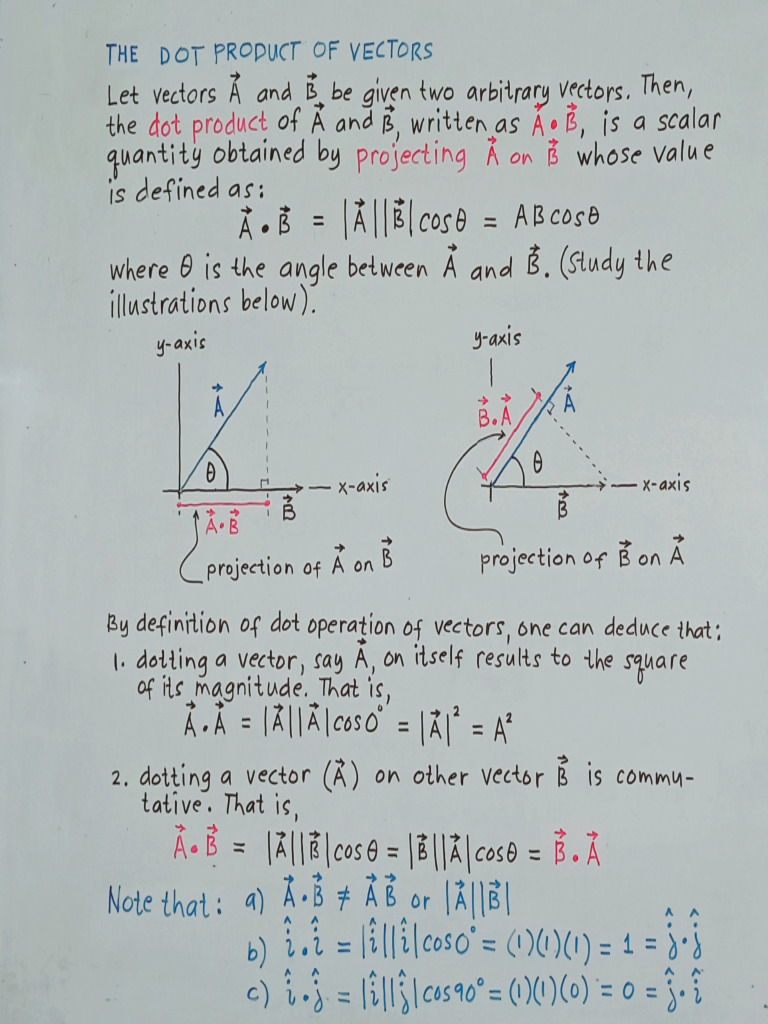 THE DOT PRODUCT OF VECTORS
Let vectors A⃗ and B⃗ be given two arbitrary vectors. Then,
the dot product of A⃗ and B⃗, written as A⃗ • B⃗, is a scalar
quantity obtained by projecting A⃗ on B⃗ whose value
is defined as:
A⃗ • B⃗ = |A⃗||B⃗|cosθ = ABcosθ
where θ is the angle between A⃗ and B⃗. (Study the
illustrations below).
y-axis
A⃗
θ
x-axis
B⃗
A⃗•B⃗
projection of A⃗ on B⃗
y-axis
B⃗•A⃗
A⃗
θ
x-axis
B⃗
projection of B⃗ on A⃗
By definition of dot operation of vectors, one can deduce that:
1. dotting a vector, say A⃗, on itself results to the square
of its magnitude. That is,
A⃗ • A⃗ = |A⃗||A⃗|cos0° = |A⃗|² = A²
2. dotting a vector (A⃗) on other vector B⃗ is commu-
tative. That is,
A⃗ • B⃗ = |A⃗||B⃗|cosθ = |B⃗||A⃗|cosθ = B⃗ • A⃗
Note that: a) A⃗ • B⃗ ≠ A⃗ B⃗ or |A⃗||B⃗|
b) î • î = |î||î|cos0° = (1)(1)(1) = 1 = ĵ • ĵ
c) î • ĵ = |î||ĵ|cos90° = (1)(1)(0) = 0 = ĵ • î